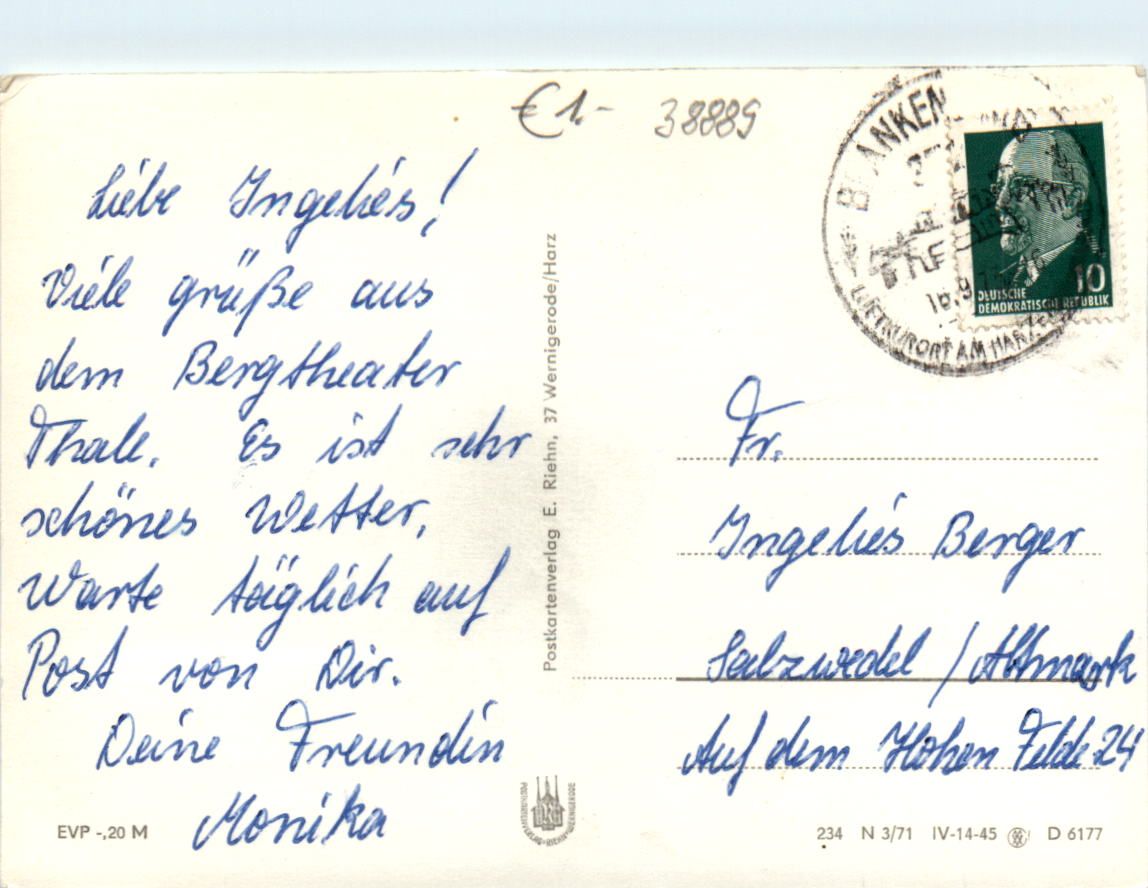 €1.- 38889
Liebe Ingelies!
Viele grüße aus
dem Bergtheater
Thale. Es ist sehr
schönes Wetter,
Warte täglich auf
Post von Dir.
Deine Freundin
Monika
EVP -,20 M
Postkartenverlag E. Riehn, 37 Wernigerode/Harz
BLANKEN
LUFTKURORT AM HARZ
10
DEUTSCHE
DEMOKRATISCHE REPUBLIK
Fr.
Ingelies Berger
Salzwedel / Altmark
Auf dem Hohen Felde 24
234 N 3/71 IV-14-45 D 6177